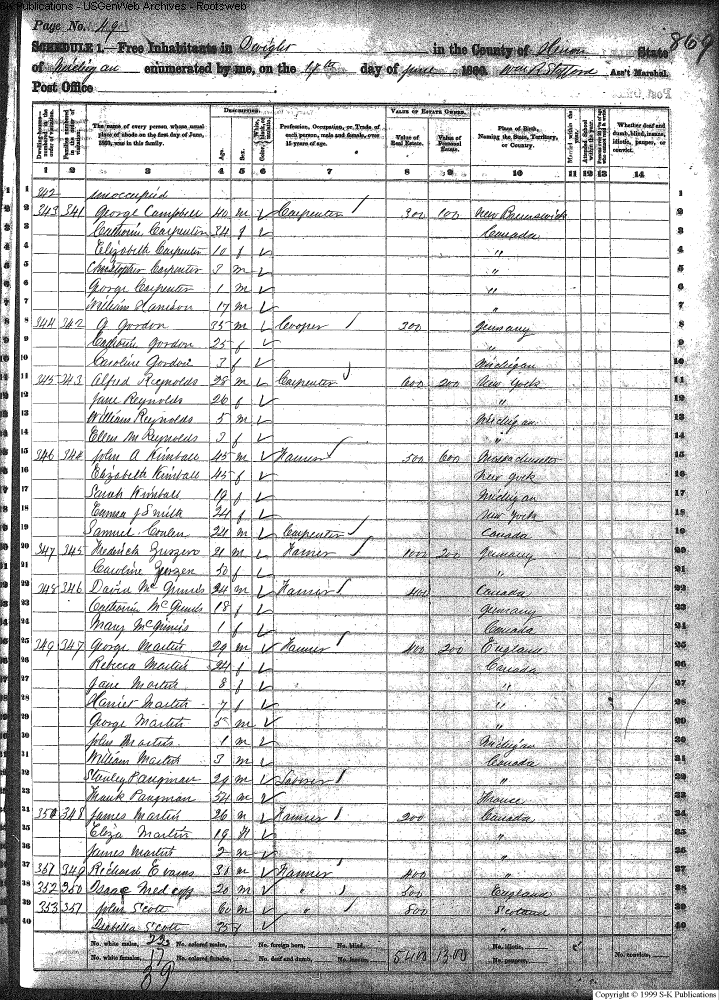 S-K Publications - USGenWeb Archives - Rootsweb
Page No. 49
869
SCHEDULE 1.—Free Inhabitants in Dwight in the County of Huron State
of Michigan enumerated by me, on the day of June 1860. Ass't Marshal.
Post Office
Dwelling-houses—numbered in the order of visitation.
Families numbered in the order of visitation.
The name of every person whose usual place of abode on the first day of June, 1860, was in this family.
DESCRIPTION.
Age.
Sex.
Color, White, black, or mulatto.
Profession, Occupation, or Trade of each person, male and female, over 15 years of age.
VALUE OF ESTATE OWNED.
Value of Real Estate.
Value of Personal Estate.
Place of Birth, Naming the State, Territory, or Country.
Married within the year.
Attended School within the year.
Whether deaf and dumb, blind, insane, idiotic, pauper, or convict.
1 2 3 4 5 6 7 8 9 10 11 12 13 14
1 342 unoccupied 1
2 343 341 George Campbell 40 m ✓ Carpenter 300 100 New Brunswick 2
3 Catharin Carpenter 34 f ✓ Canada 3
4 Elizabeth Carpenter 10 f ✓ " 4
5 Christopher Carpenter 3 m ✓ " 5
6 George Carpenter 1 m ✓ " 6
7 William 17 m ✓ " 7
8 344 342 G Gordon 35 m ✓ Cooper 300 Germany 8
9 Catharin Gordon 25 f ✓ " 9
10 Caroline Gordon 3 f ✓ Michigan 10
11 345 343 Alfred Reynolds 28 m ✓ Carpenter 600 200 New York 11
12 Jane Reynolds 26 f ✓ " 12
13 William Reynolds 5 m ✓ Michigan 13
14 Ellen M Reynolds 3 f ✓ " 14
15 346 344 John A Kimball 45 m ✓ Farmer 500 600 Massachusetts 15
16 Elizabeth Kimball 45 f ✓ New York 16
17 Sarah Kimball 19 f ✓ Michigan 17
18 Emma J Smith 24 f ✓ New York 18
19 Samuel 24 m ✓ Carpenter Canada 19
20 347 345 Fredrick 21 m ✓ Farmer 1000 200 Germany 20
21 Caroline 50 f ✓ " 21
22 348 346 David McGinnis 24 m ✓ Farmer 400 Canada 22
23 Catharin McGinnis 18 f ✓ Germany 23
24 Mary McGinnis 1 f ✓ Canada 24
25 349 347 George Martin 29 m ✓ Farmer 400 200 England 25
26 Rebecca Martin 24 f ✓ Canada 26
27 Jane Martin 8 f ✓ " 27
28 Harriet Martin 7 f ✓ " 28
29 George Martin 5 m ✓ " 29
30 John Martin 1 m ✓ Michigan 30
31 William Martin 3 m ✓ Canada 31
32 Stanley Pangman 29 m ✓ Laborer " 32
33 Frank Pangman 54 m ✓ France 33
34 350 348 James Martin 26 m ✓ Farmer 200 Canada 34
35 Eliza Martin 19 f ✓ " 35
36 James Martin 2 m ✓ " 36
37 351 349 Richard Evans 31 m ✓ Farmer 400 " 37
38 352 350 Isaac 20 m ✓ " 500 England 38
39 353 351 John Scott 60 m ✓ " 800 Scotland 39
40 Isabella Scott 35 f ✓ " 40
No. white males, 22 No. colored males, No. foreign born, No. blind,
No. white females, 17 No. colored females, No. deaf and dumb, No. insane, 5400 1300 No. idiotic, No. paupers, No. convicts,
39
Copyright © 1999 S-K Publications